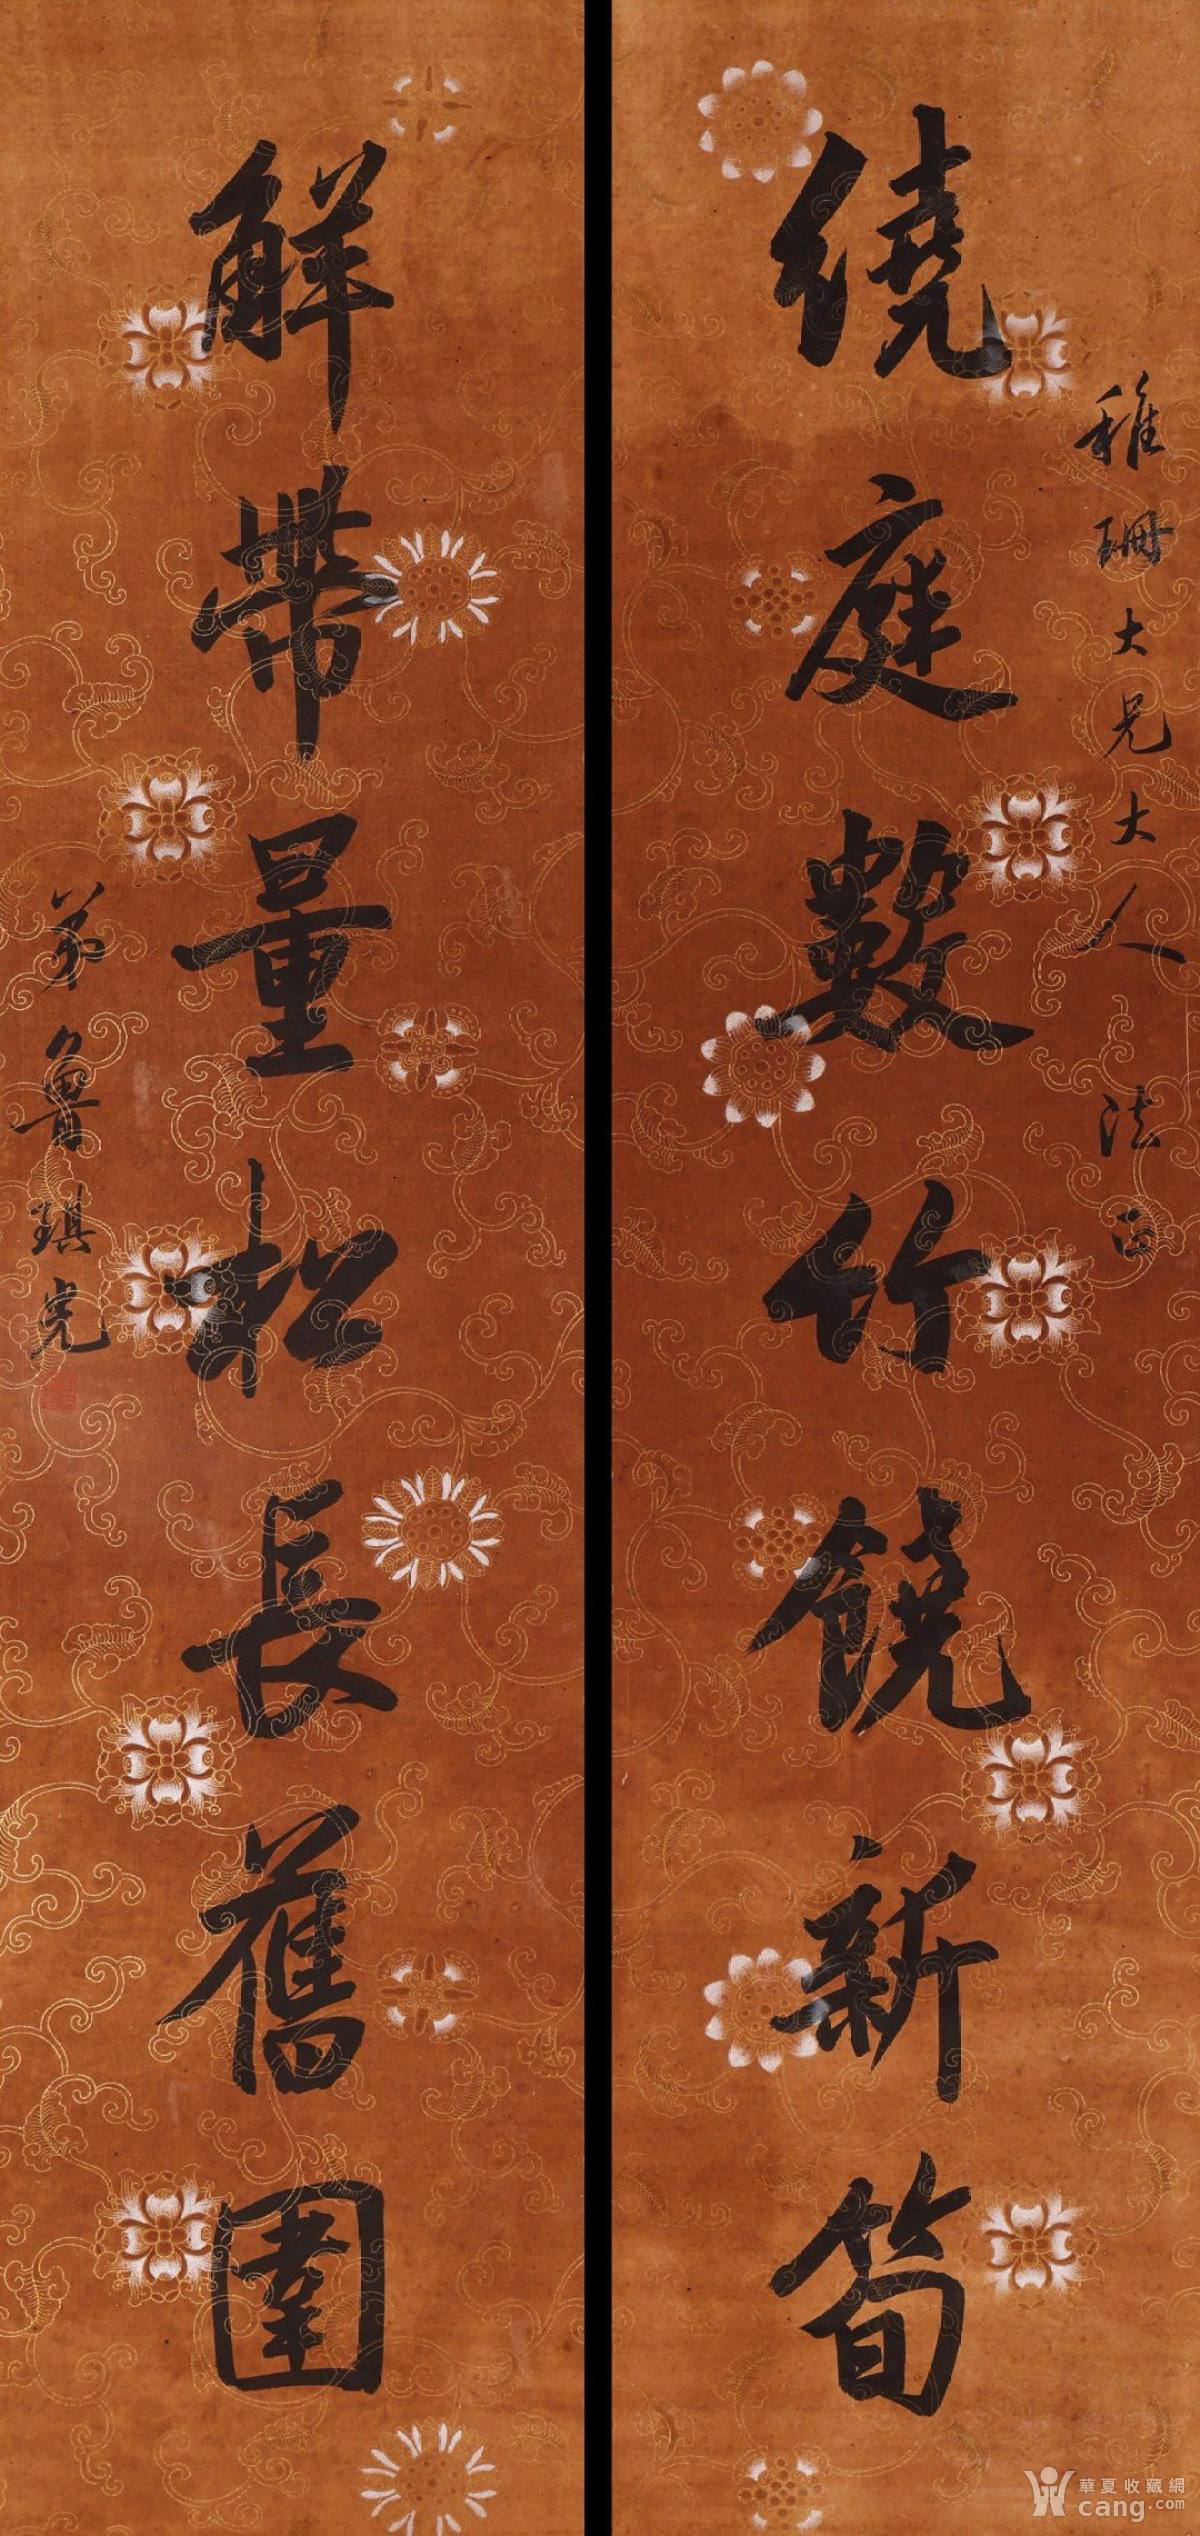 稚珊大兄大人 法正
繞庭數竹饒新筍
解帶量松長舊圍
弟魯琪光
華夏收藏網
cang.com